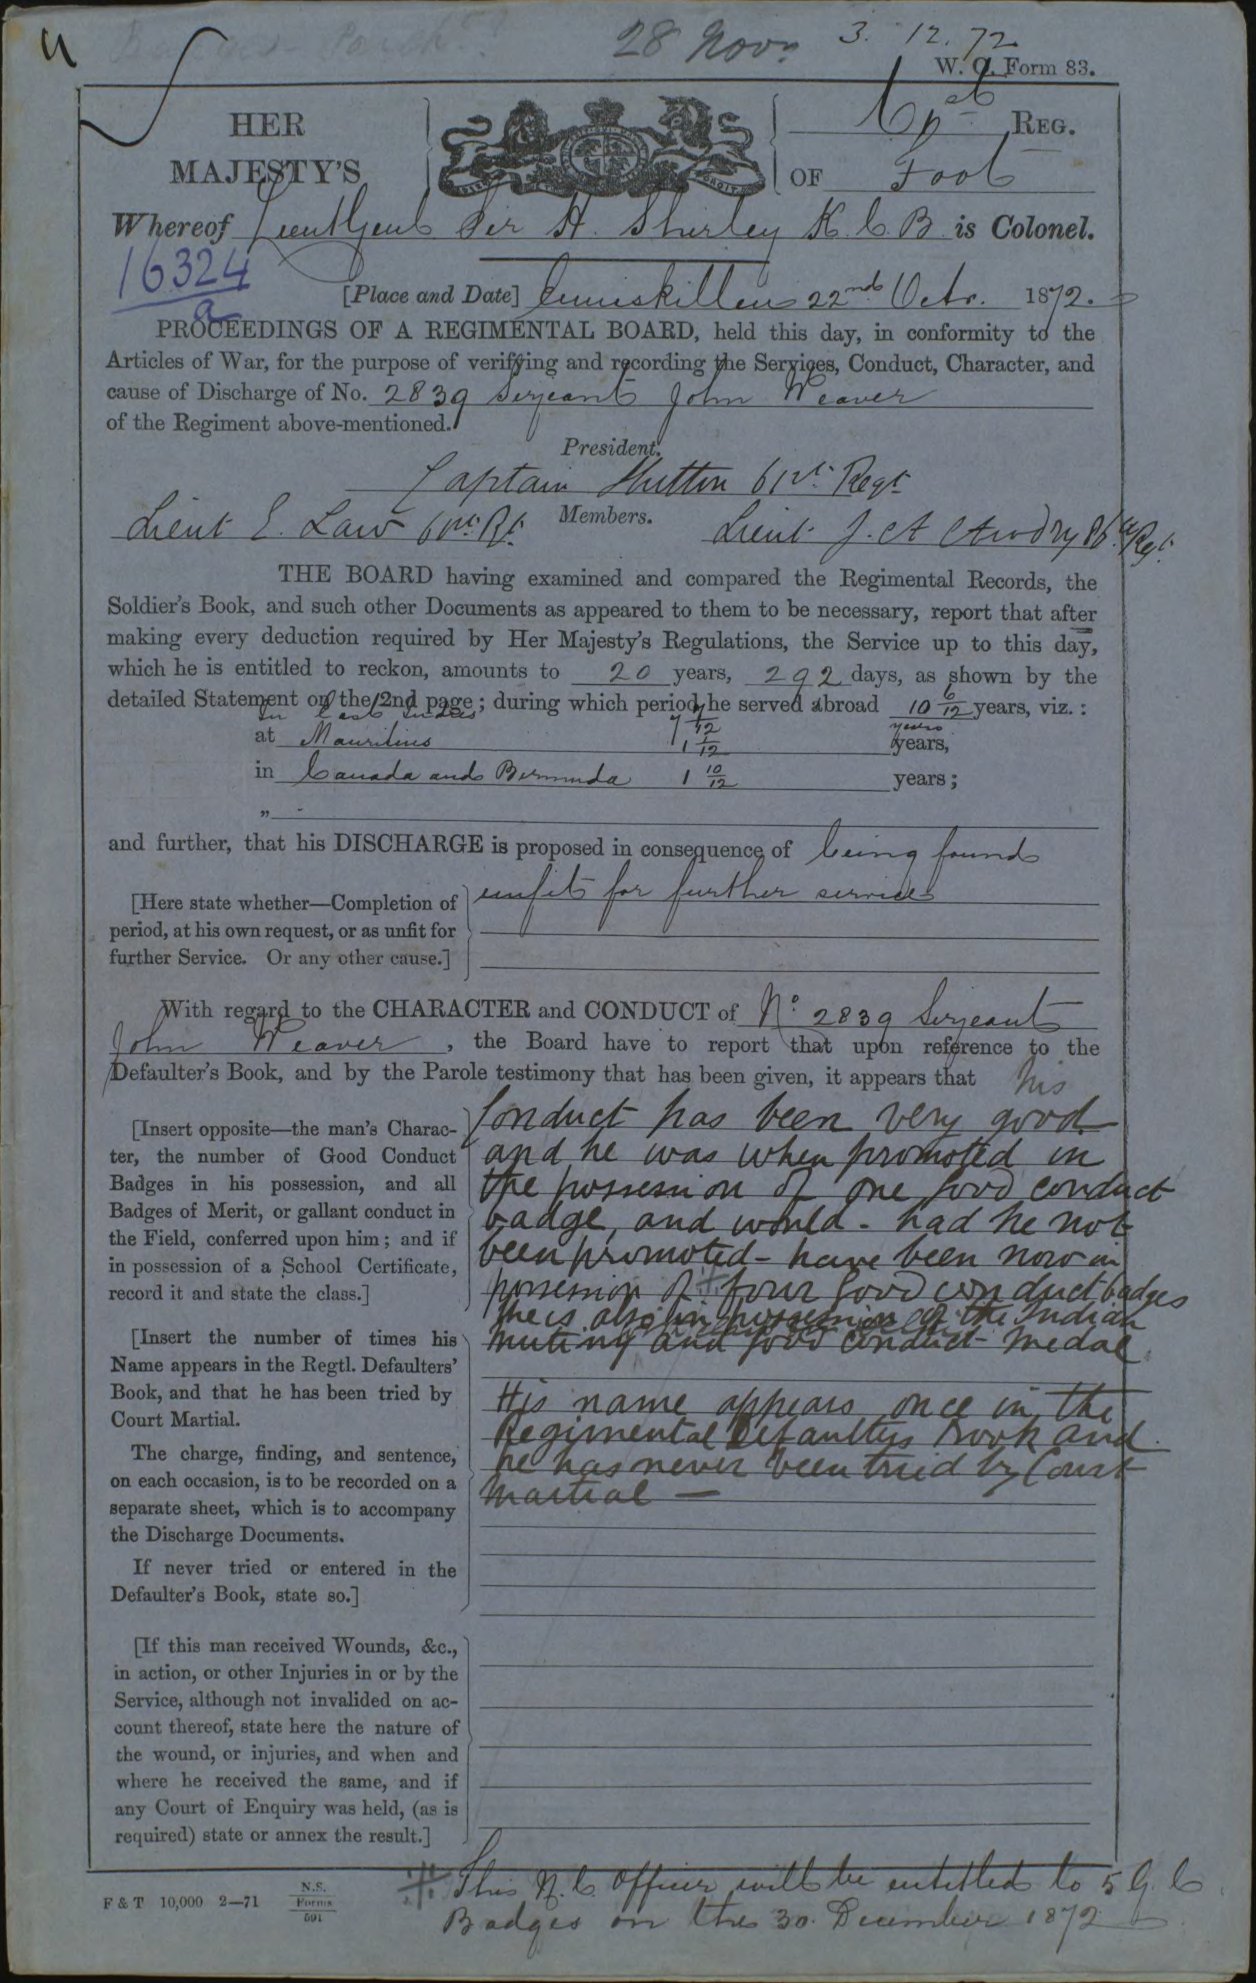 28 Novr 3. 12. 72
W. O. Form 83.
HER
MAJESTY'S
61st REG.
OF Foot
Whereof Lieut Genl Sir H. Shirley K. C. B. is Colonel.
16324
a
[Place and Date] Enniskillen 22nd Octr. 1872.
PROCEEDINGS OF A REGIMENTAL BOARD, held this day, in conformity to the
Articles of War, for the purpose of verifying and recording the Services, Conduct, Character, and
cause of Discharge of No. 2839 Serjeant John Weaver
of the Regiment above-mentioned.
President.
Captain Hutton 61st Regt
Members.
Lieut E. Law 61st Rt. Lieut J. A Awdry 86th Regt.
THE BOARD having examined and compared the Regimental Records, the
Soldier's Book, and such other Documents as appeared to them to be necessary, report that after
making every deduction required by Her Majesty's Regulations, the Service up to this day,
which he is entitled to reckon, amounts to 20 years, 292 days, as shown by the
detailed Statement on the 2nd page; during which period he served abroad 10 6/12 years, viz.:
In East Indies 7 7/12 years
at Mauritius 1 1/12 years,
in Canada and Bermuda 1 10/12 years;
"
and further, that his DISCHARGE is proposed in consequence of being found
unfit for further service
[Here state whether—Completion of
period, at his own request, or as unfit for
further Service. Or any other cause.]
With regard to the CHARACTER and CONDUCT of No. 2839 Serjeant
John Weaver, the Board have to report that upon reference to the
Defaulter's Book, and by the Parole testimony that has been given, it appears that his
Conduct has been very good
and he was when promoted in
the possession of one good conduct
badge, and would - had he not
been promoted - have been now in
possession of # four good conduct badges
He is also in possession of the Indian
mutiny and good conduct medal
[Insert opposite—the man's Charac-
ter, the number of Good Conduct
Badges in his possession, and all
Badges of Merit, or gallant conduct in
the Field, conferred upon him; and if
in possession of a School Certificate,
record it and state the class.]
[Insert the number of times his
Name appears in the Regtl. Defaulters'
Book, and that he has been tried by
Court Martial.
The charge, finding, and sentence,
on each occasion, is to be recorded on a
separate sheet, which is to accompany
the Discharge Documents.
If never tried or entered in the
Defaulter's Book, state so.]
His name appears once in the
Regimental Defaulters Book and
he has never been tried by Court
Martial —
[If this man received Wounds, &c.,
in action, or other Injuries in or by the
Service, although not invalided on ac-
count thereof, state here the nature of
the wound, or injuries, and when and
where he received the same, and if
any Court of Enquiry was held, (as is
required) state or annex the result.]
# This N. C. Officer will be entitled to 5 G. C.
Badges on the 30. December 1872
F & T 10,000 2—71
N.S.
Forms
591